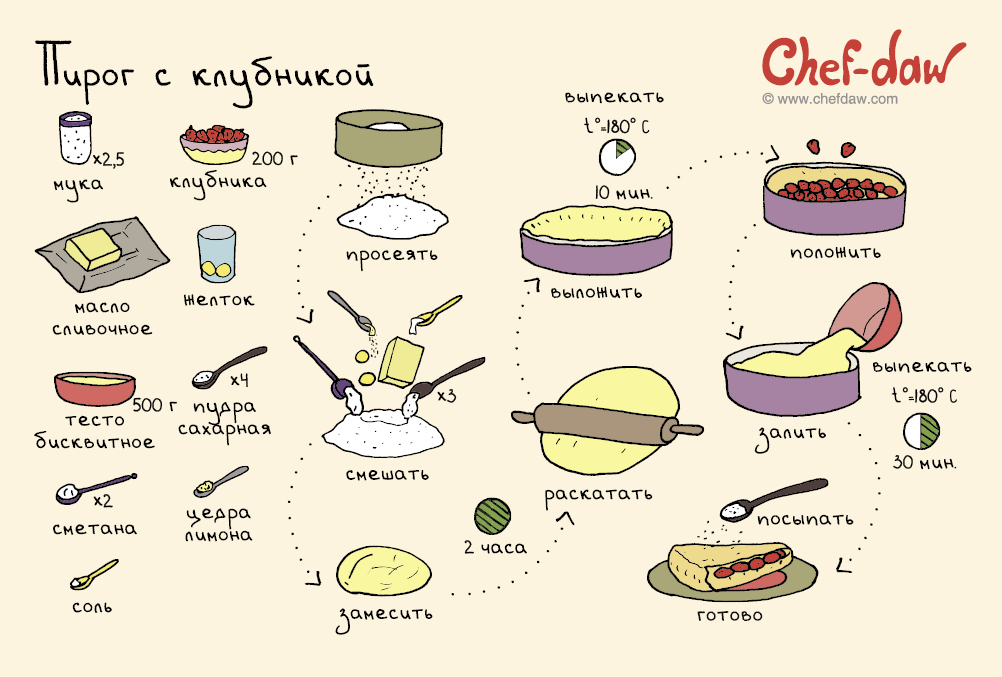 Пирог с клубникой
Chef-daw
© www.chefdaw.com
x2,5
мука
200 г
клубника
масло
сливочное
желток
500 г
тесто
бисквитное
x4
пудра
сахарная
x2
сметана
цедра
лимона
соль
просеять
x3
смешать
замесить
2 часа
раскатать
выложить
выпекать
t°=180° C
10 мин.
положить
залить
выпекать
t°=180° C
30 мин.
посыпать
готово